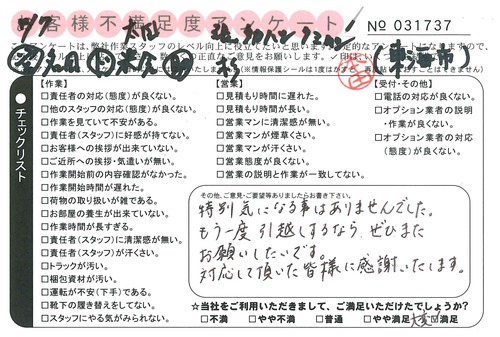 お客様不満足度アンケート
No 031737
(東海市)
チェックリスト
【作業】
□責任者の対応(態度)が良くない。
□他のスタッフの対応(態度)が良くない。
□作業を見ていて不安がある。
□責任者(スタッフ)に好感が持てない。
□お客様への挨拶が出来ていない。
□ご近所への挨拶・気遣いが無い。
□作業開始前の内容確認がなかった。
□作業開始時間が遅れた。
□荷物の取り扱いが雑である。
□お部屋の養生が出来ていない。
□作業時間が長すぎる。
□責任者(スタッフ)に清潔感が無い。
□責任者(スタッフ)が汗くさい。
□トラックが汚い。
□梱包資材が汚い。
□運転が不安(下手)である。
□靴下の履き替えをしてない。
□スタッフにやる気がみられない。
【営業】
□見積もり時間に遅れた。
□見積もり時間が長い。
□営業マンに清潔感が無い。
□営業マンが煙草くさい。
□営業マンが汗くさい。
□営業態度が良くない。
□営業の説明が良くない。
【受付・その他】
□電話の対応が良くない。
□オプション業者の説明
・作業が良くない。
□オプション業者の対応
(態度)が良くない。
その他、ご意見・ご要望等ありましたらお書き下さい。
特別気になる事はありませんでした。
もう一度引越しするなら、ぜひまた
お願いしたいです。
対応して頂いた皆様に感謝いたします。
☆当社をご利用いただきまして、ご満足いただけたでしょうか?
□不満 □やや不満 □普通 □やや満足 □満足